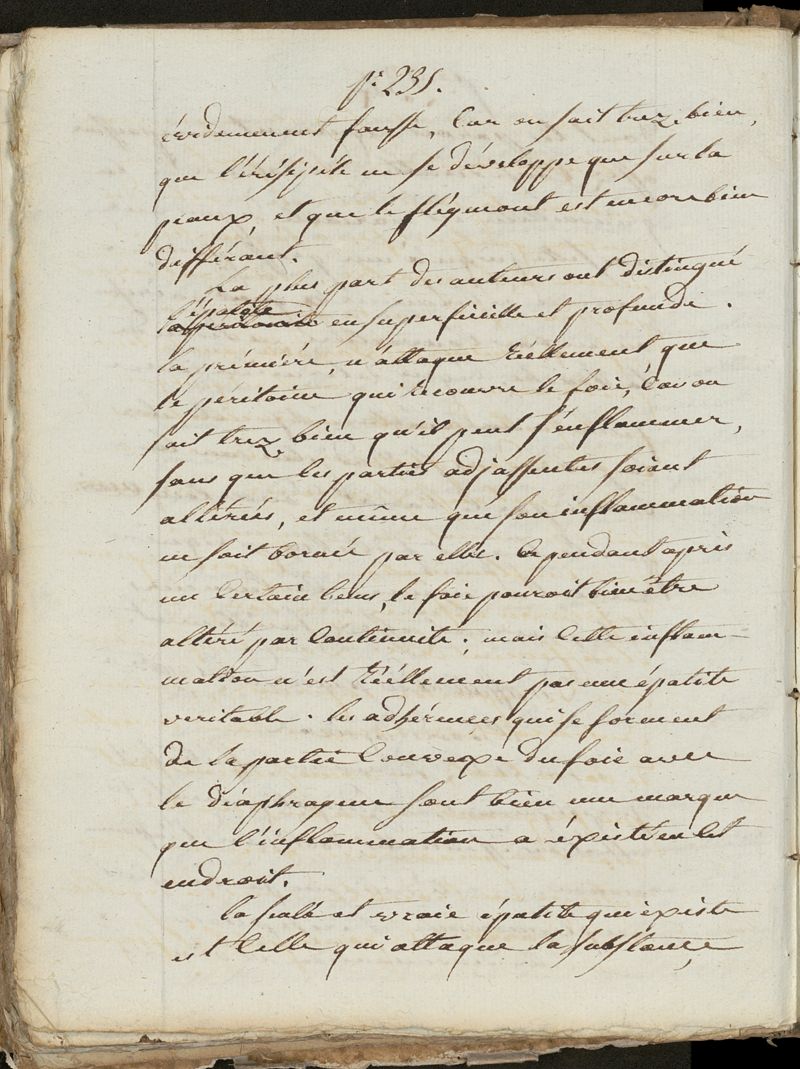 pe 231.
évidemment fausse, Car on sait trez bien,
que l'érésipéle ne se développe que sur la
peaux, et que le flégmont est encore bien
différant.
La plus part des auteurs ont distingué
l'épatite
la peritonite en superficielle et profonde.
la prémiére, n'attaque réellement que
le péritoine qui recouvre le foie, Car on
sait trez bien qu'il peut s'enflammer,
sans que les parties adjassentes soient
altérées, et même que son inflammation
ne soit bornée par elle. Cependant aprés
un Certain tems, le foie pouroit bien être
altéré par Continuité; mais Cette inflam-
mation n'est réellement pas une épatite
veritable. les adhérences qui se forment
de la partie Convexe du foie avec
le diaphragme sont bien une marque
que l'inflammation a éxisté en Cet
endroit.
la seule et vraie épatite qui existe
est Celle qui attaque la substance,